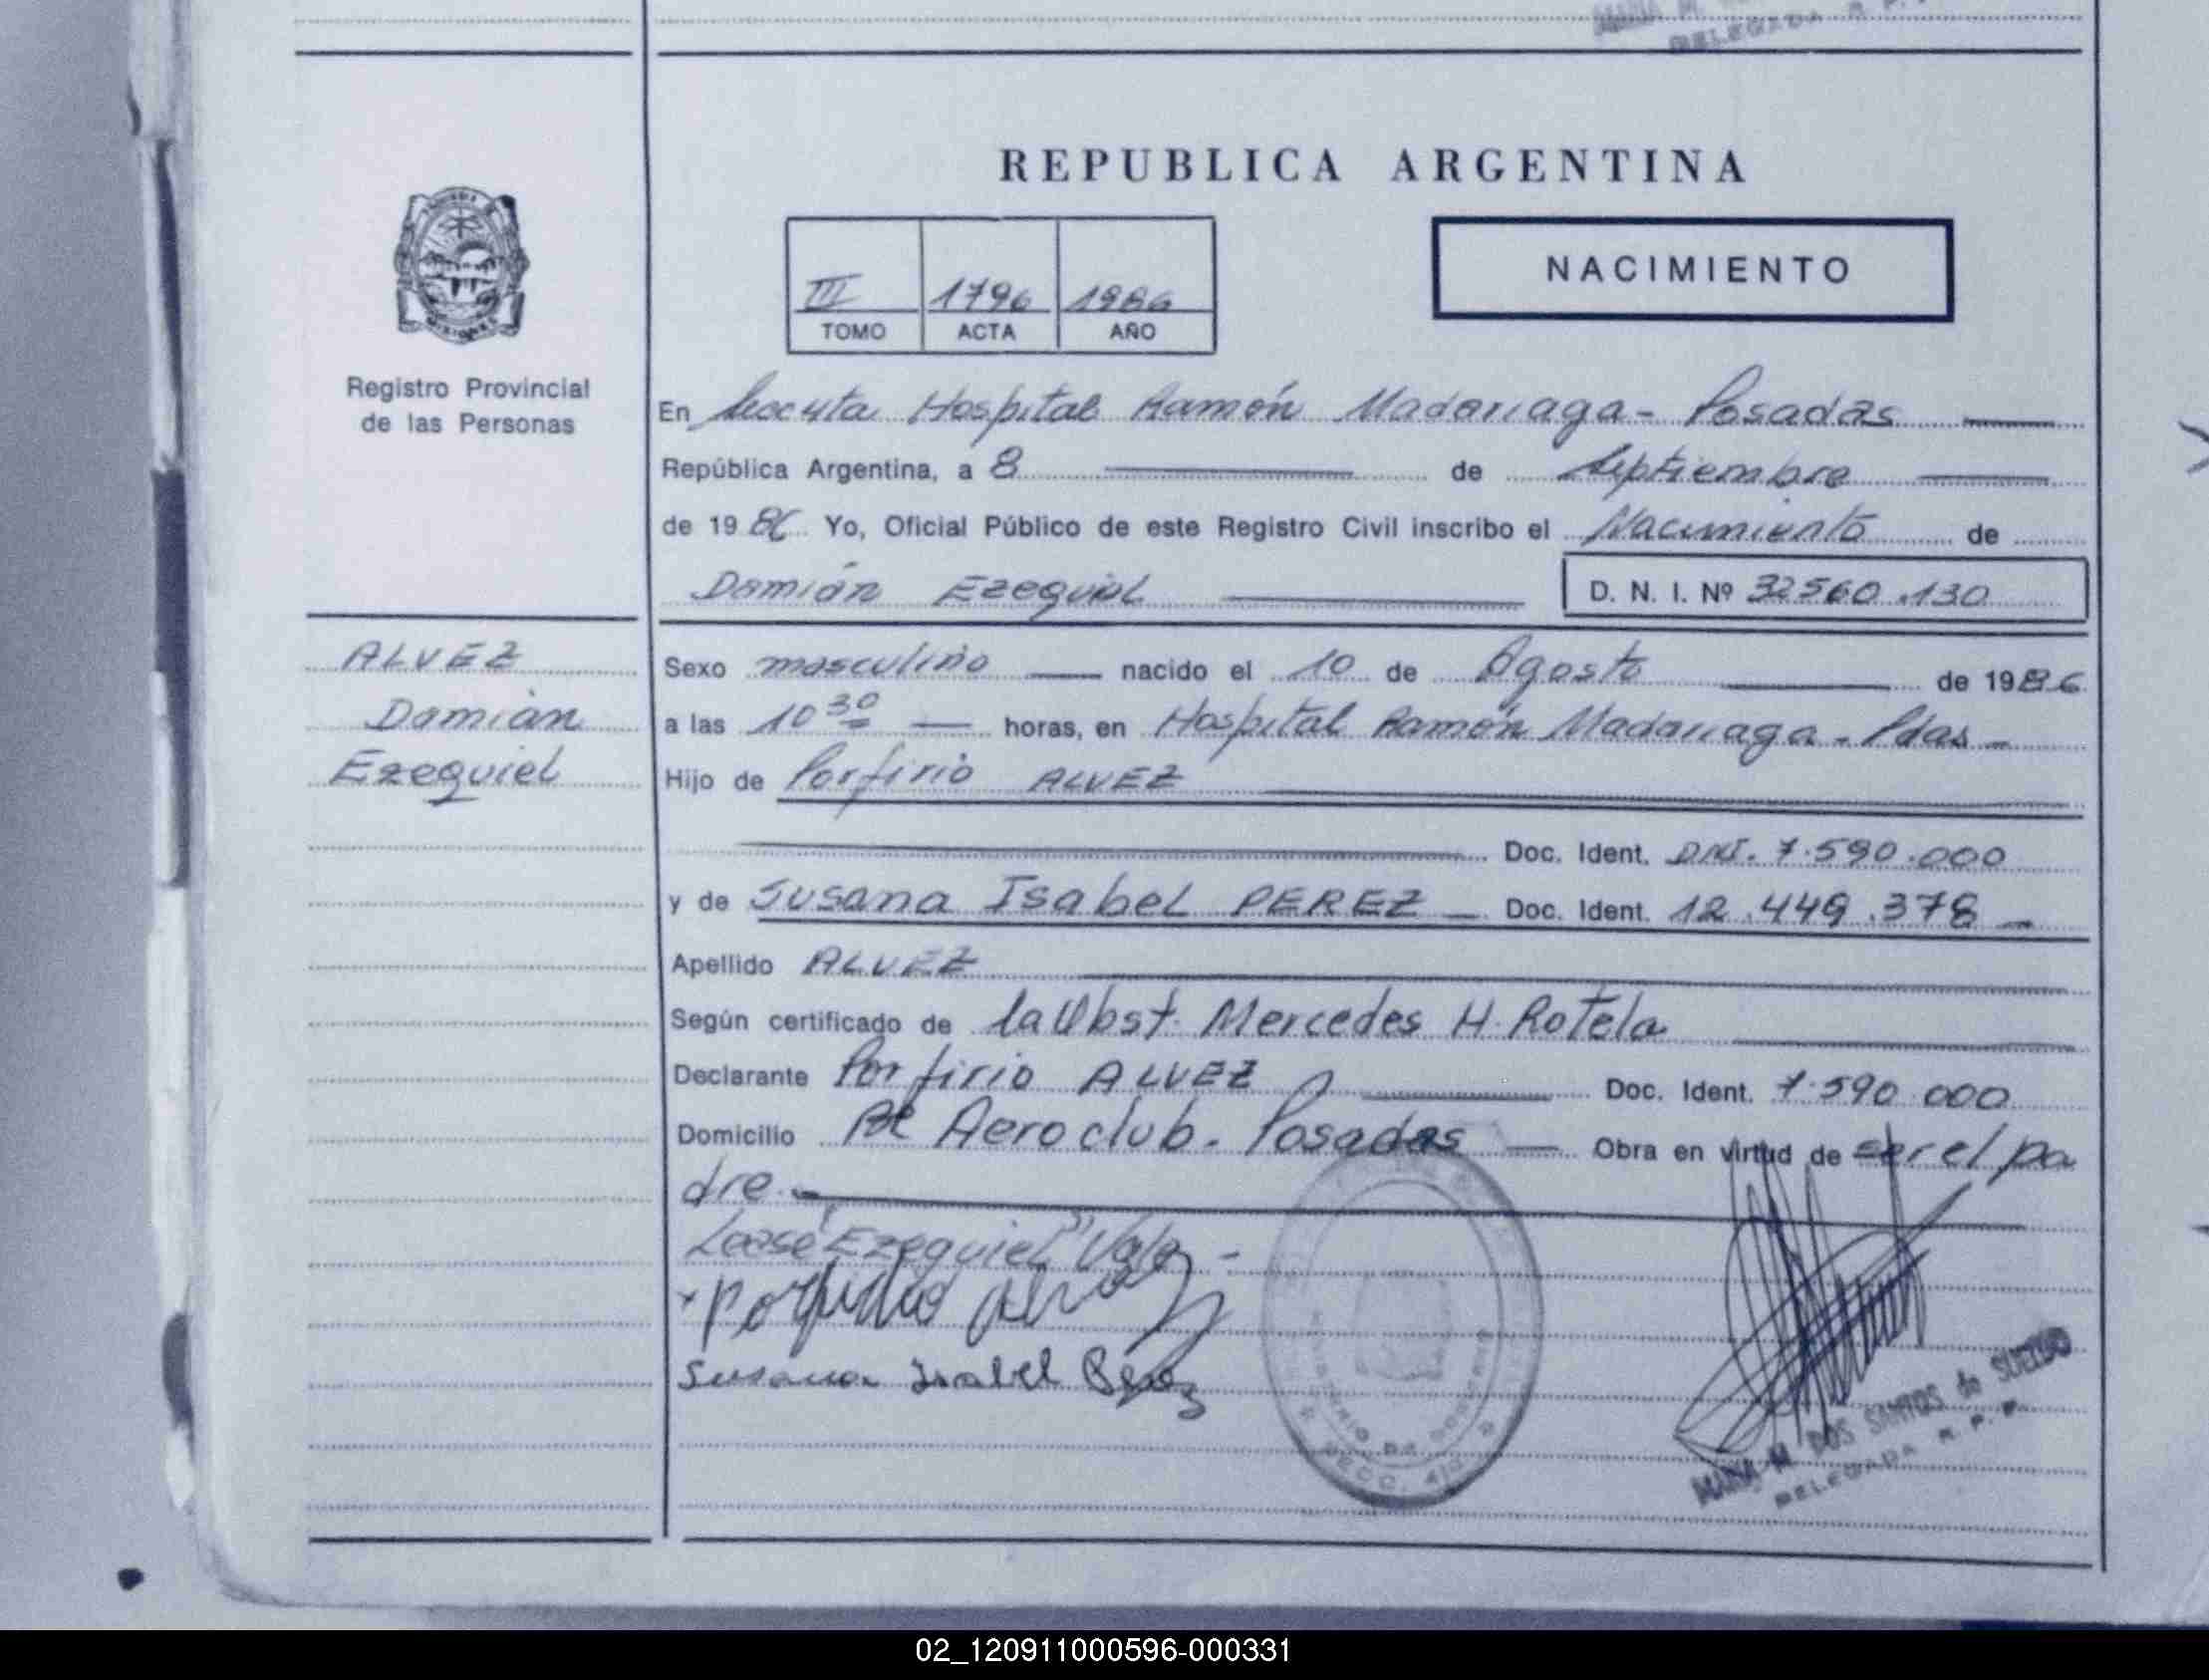 DELEGADA R. P.
REPUBLICA ARGENTINA
NACIMIENTO
III 1796 1986
TOMO ACTA AÑO
Registro Provincial
de las Personas
En Hospital Ramón Madariaga - Posadas
República Argentina, a 8 de Septiembre
de 1986 Yo, Oficial Público de este Registro Civil inscribo el Nacimiento de
Damián Ezequiel D. N. I. Nº 32560.130
ALVEZ
Damián
Ezequiel
Sexo masculino nacido el 10 de Agosto de 1986
a las 10 30 horas, en Hospital Ramón Madariaga - Pdas -
Hijo de Porfirio ALVEZ
Doc. Ident. DNI. 7.590.000
y de Susana Isabel PEREZ Doc. Ident. 12.449.378
Apellido ALVEZ
Según certificado de la Obst. Mercedes H. Rotela
Declarante Porfirio ALVEZ Doc. Ident. 7.590.000
Domicilio Aeroclub - Posadas Obra en virtud de ser el pa
dre.
Lease "Ezequiel" Vale -
Susana Isabel Perez
MARIA M. DOS SANTOS de SUELDO
DELEGADA R. P. P.
02_120911000596-000331